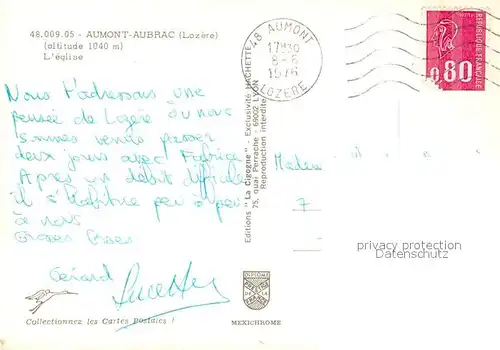 48.009.05 - AUMONT-AUBRAC (Lozère)
(altitude 1040 m)
L'église
Nous t'adressons une
pensée de Lozère où nous
sommes venus passer
deux jours avec Fabrice
Après un début difficile
il s'habitue peu à peu
à nous
Grosses Bises
Gérard
Collectionnez les Cartes Postales !
Editions "La Cigogne" - Exclusivité HACHETTE
75, quai Perrache - 69002 LYON
Reproduction interdite
MEXICHROME
48 AUMONT
17H30
8-6
1976
LOZERE
0,80
REPUBLIQUE FRANCAISE
Madame
7
privacy protection
Datenschutz